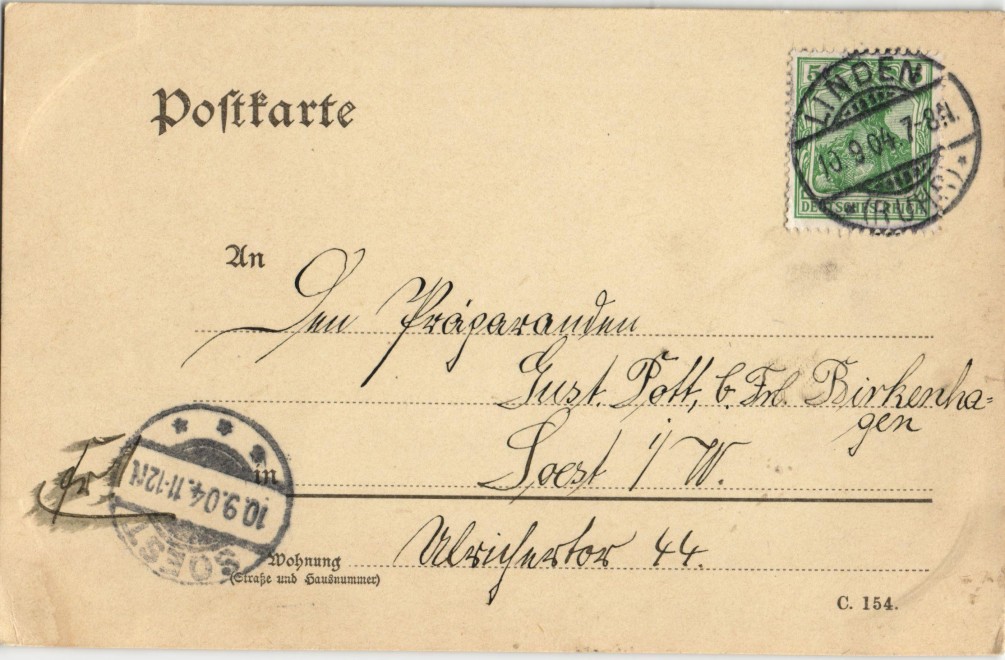 Postkarte
5
LINDEN
10.9.04. 7-8N.
(RUHR)
DEUTSCHES REICH
An
Den Präparanden
Gust. Pott, b. Frl. Birkenha=
gen
in Soest i/W.
Fr
10.9.04. 11-12
SOEST
Wohnung Ulrichertor 44.
(Straße und Hausnummer)
C. 154.